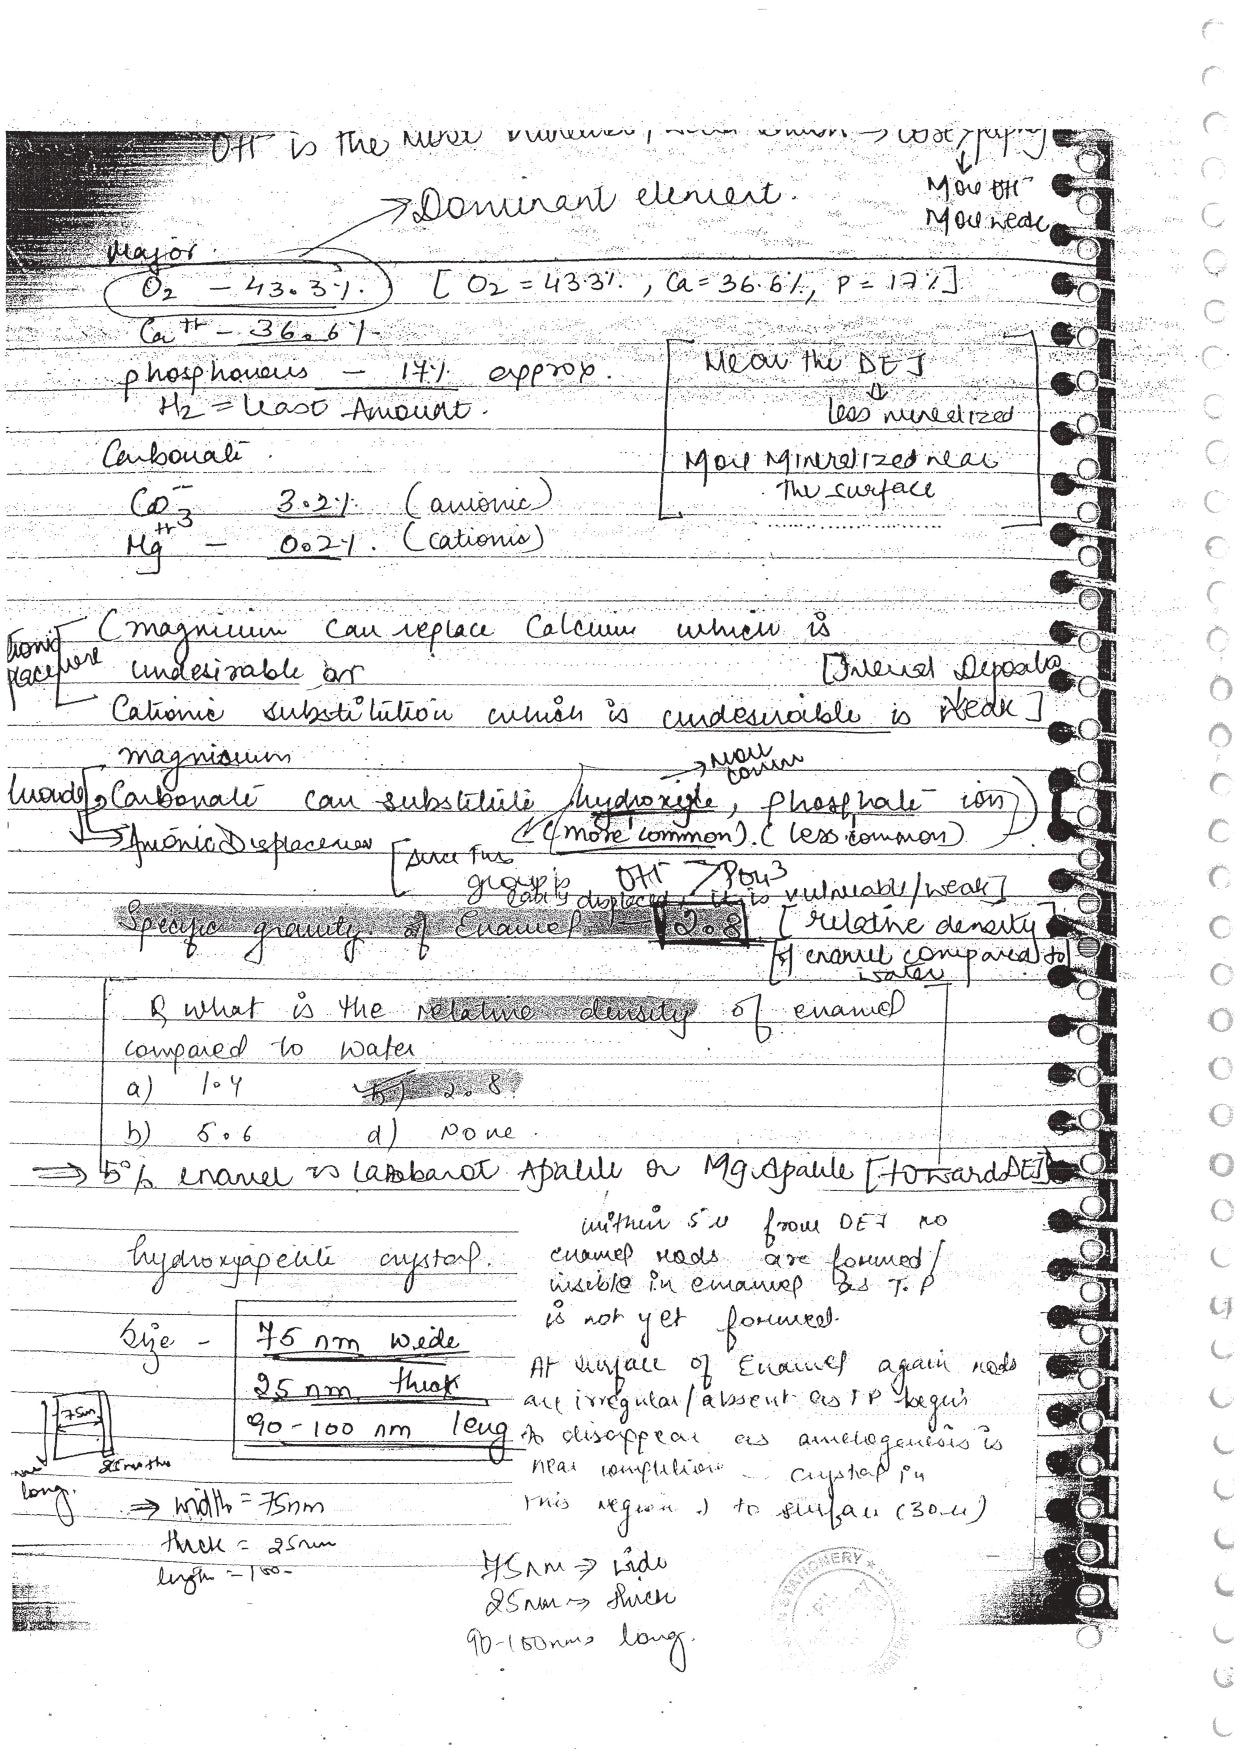 OH⁻ is the more
More OH⁻
More weak
→ Dominant element.
Major.
O2 – 43.3%. [O2 = 43.3%., Ca = 36.6%, P = 17%]
Ca++ – 36.6%
phosphorous – 17% approx.
H2 = least Amount.
Near the DEJ
↓
less mineralized
More Mineralized near
the surface
Carbonate.
CO3-- 3.2%. (anionic)
Mg++ – 0.2%. (cationic)
(magnicium can replace Calcium which is
undesirable or
[Internal Deposits
Cationic substitution which is undesirable is weak]
magnisium
→ more comm
Carbonate can substitute hydroxyle, phosphate ion
(more common). (less common)
→ Anionic Displacement
[since this
group is OH⁻ > PO4³
easily displaced, it is vulnerable/weak]
Specific gravity of Enamel – 2.8 [relative density
of enamel compared to
water
Q what is the relative density of enamel
compared to water
a) 1.4 b) 2.8
b) 5.6 d) None.
⇒ 5% enamel is Apatite or Mg.Apatite [toward DEJ]
within 5 u from DEJ no
enamel rods are formed/
visible in enamel as T.P
is not yet formed.
hydroxyapetite crystal.
Size – 75 nm wide
25 nm thick
90-100 nm long
At surface of Enamel again rods
are irregular/absent as TP begins
to disappear as amelogenesis is
near completion crystal in
this region to surface (30 u)
75nm
long.
⇒ width = 75nm
thick = 25nm
length = 100-
75nm ⇒ wide
25nm ⇒ thick
90-100nm ⇒ long.
STATIONERY